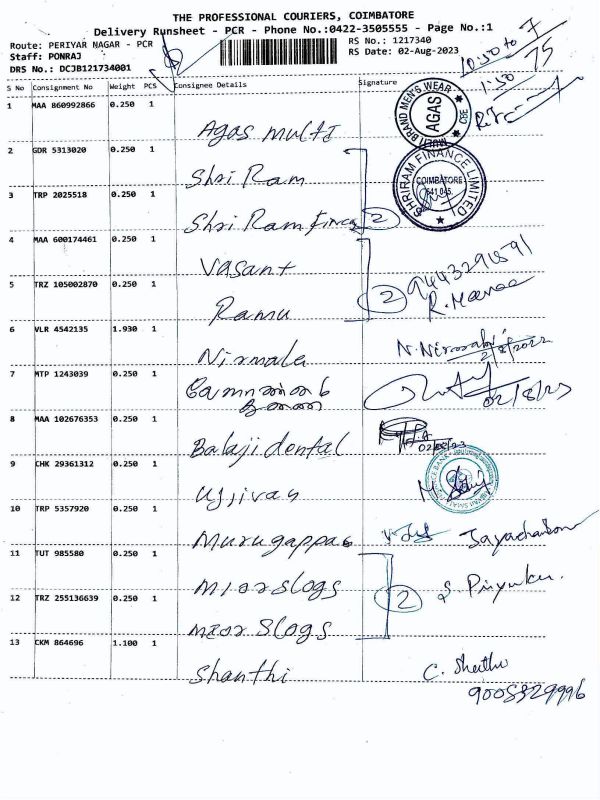 THE PROFESSIONAL COURIERS, COIMBATORE
Delivery Runsheet - PCR - Phone No.:0422-3505555 - Page No.:1
Route: PERIYAR NAGAR - PCR
RS No.: 1217340
Staff: PONRAJ
RS Date: 02-Aug-2023
DRS No.: DCJB121734001
10:30 to 7
1:30 75
S No Consignment No Weight PCS Consignee Details Signature
1 MAA 860992866 0.250 1 Agas multi
BRAND MEN'S WEAR AGAS CBE
2 GDR 5313020 0.250 1 Shri Ram
SHRIRAM FINANCE LIMITED COIMBATORE 641 045.
3 TRP 2025518 0.250 1 Shri Ram 2
4 MAA 600174461 0.250 1 Vasant
5 TRZ 105002870 0.250 1 Ramu 2 R. Meena
6 VLR 4542135 1.930 1 Nirmala
7 MTP 1243039 0.250 1 02/8/23
8 MAA 102676353 0.250 1 Balaji dental
9 CHK 29361312 0.250 1 Ujjivan
10 TRP 5357920 0.250 1 Murugappa
11 TUT 985580 0.250 1
12 TRZ 255136639 0.250 1 2
13 CKM 864696 1.100 1 Shanthi